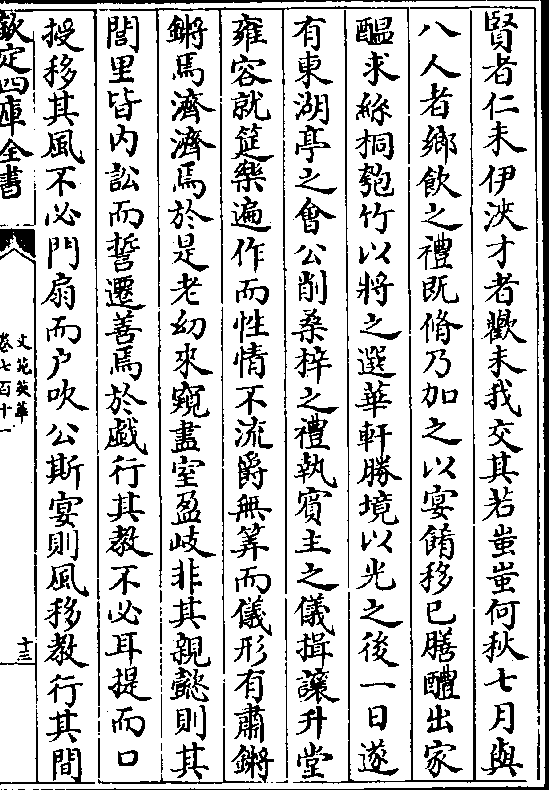 賢者仁未伊浹才者歡未我交其若蚩蚩何秋七月與
八人者鄉飲之禮既脩乃加之以宴餚移已膳醴出家
醖求絲桐匏竹以將之選華軒勝境以光之後一日遂
有東湖亭之會公削桑梓之禮執賓主之儀揖讓升堂
雍容就筵樂遍作而性情不流爵無筭而儀形有肅鏘
鏘焉濟濟焉於是老幼來窺盡室盈岐非其親懿則其
閭里皆内訟而誓遷善焉於戲行其教不必耳提而口
授移其風不必門扇而户吹公斯宴則風移教行其間
欽定四庫全書
文苑英華
卷七百十一
十三